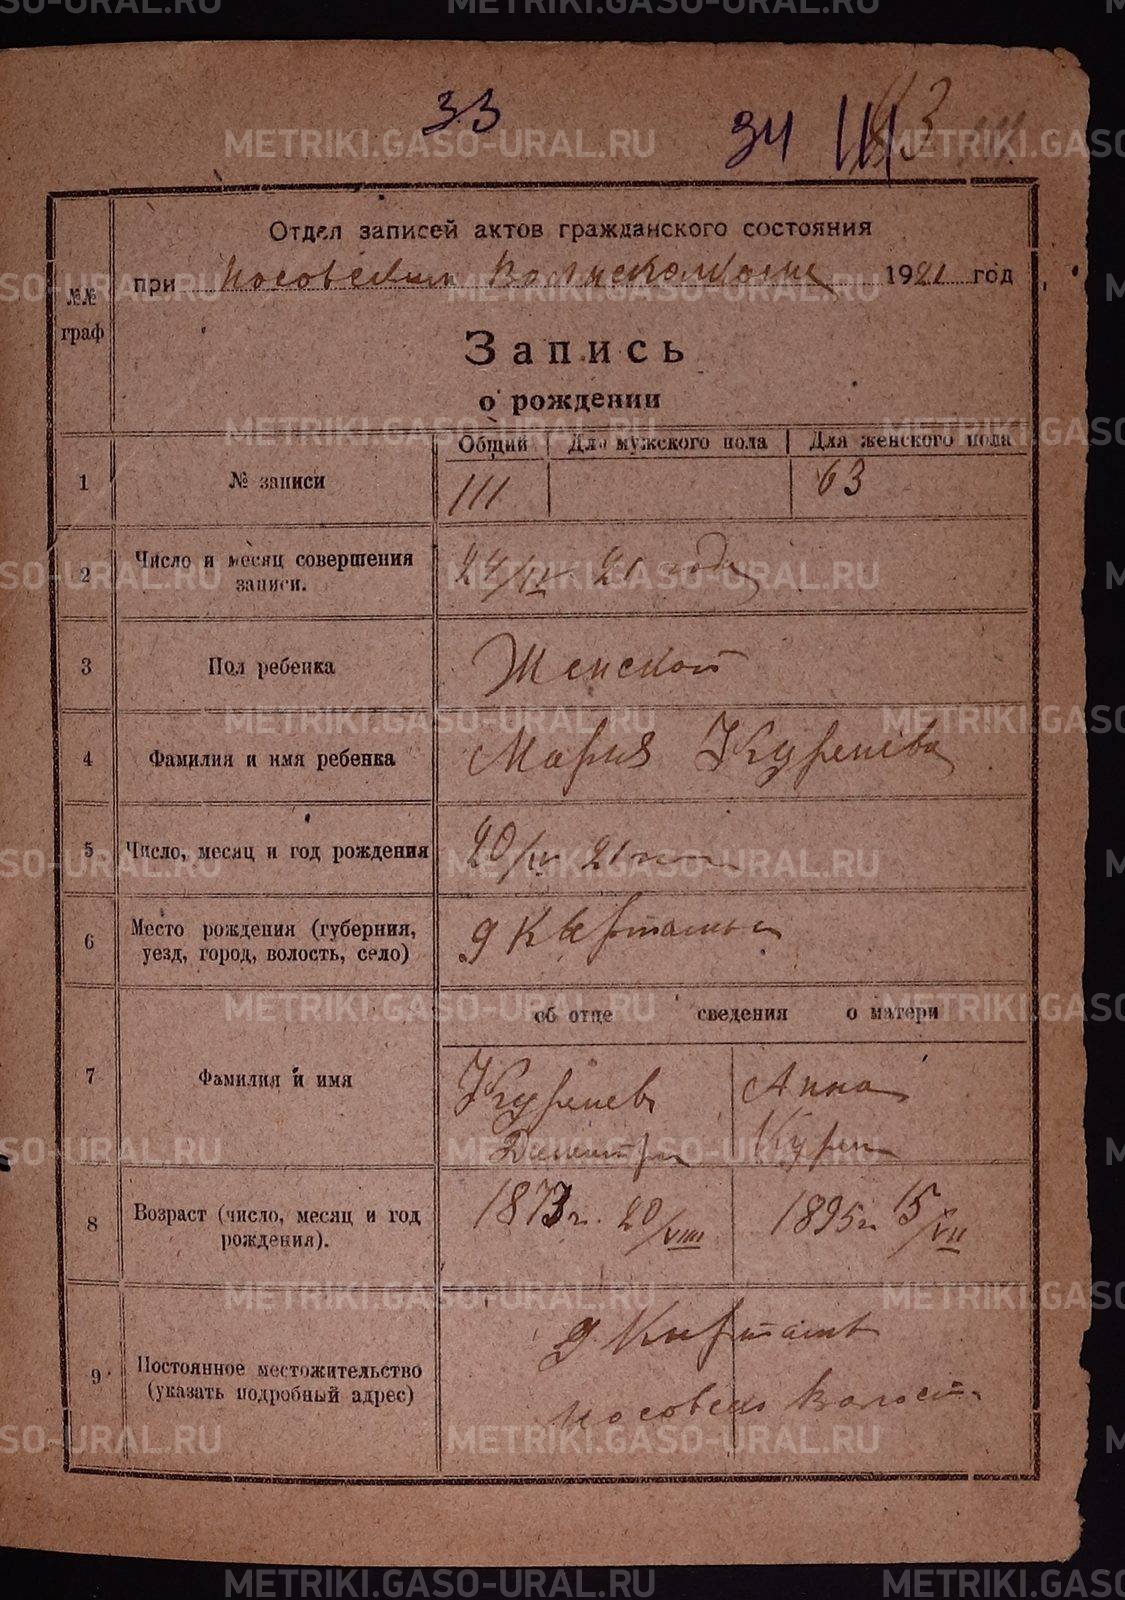 METRIKI.GASO-URAL.RU
33
34 111 63 111.
Отдел записей актов гражданского состояния
при Носовском Волисполкоме 1921 год
№№ граф
Запись
о рождении
Общий Для мужского пола Для женского пола
1 № записи 111 63
2 Число и месяц совершения записи. 24/IV 21 года
3 Пол ребенка Женской
4 Фамилия и имя ребенка Мария Куренева
5 Число, месяц и год рождения 20/IV 21
6 Место рождения (губерния, уезд, город, волость, село) д
об отце сведения о матери
7 Фамилия и имя Куренев Анна
Дмитри Курен
8 Возраст (число, месяц и год рождения). 1873 г. 20/VIII 1895 г 15/VII
9 Постоянное местожительство (указать подробный адрес) д
Носовско Волост